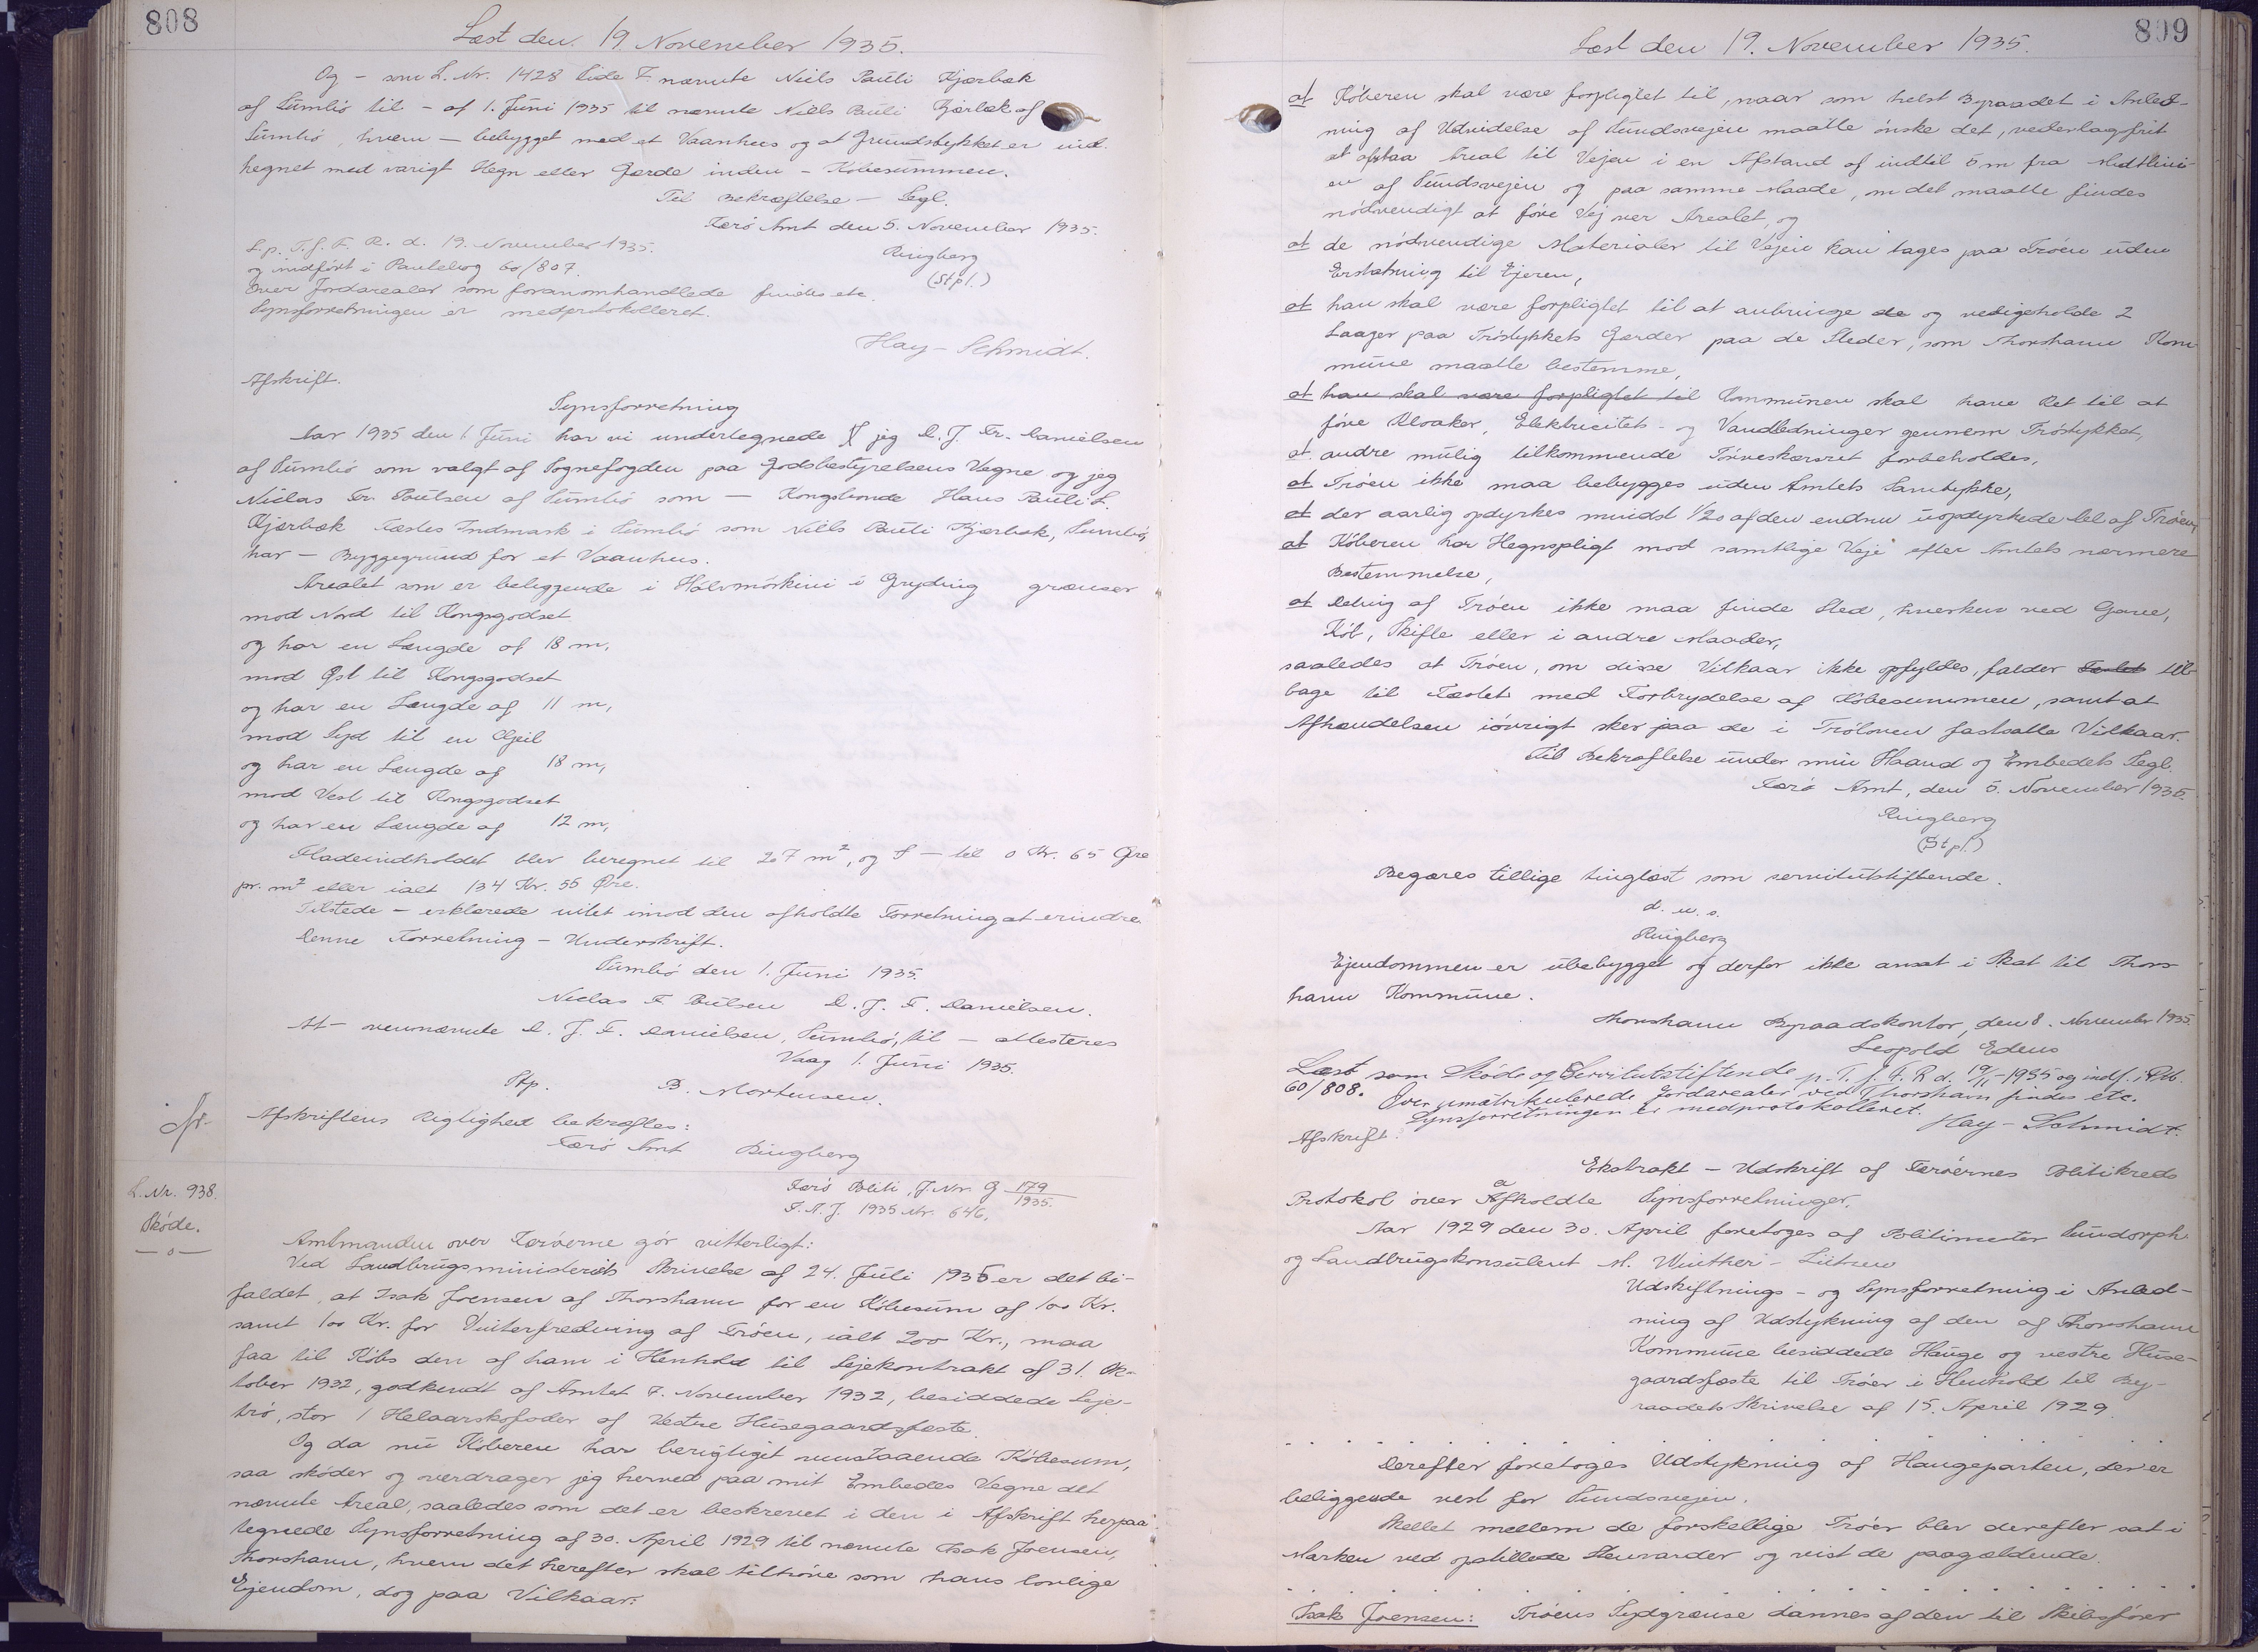 808
Læst den 19. November 1935.
Og - som L. Nr. 1428 Side 7. nævnte Niels Pauli Kjærbæk
af Sumbö til - af 1. Juni 1935 til nævnte Niels Pauli Kjærbæk af
Sumbö, hvem - bebygget med et Vaanhus og at Grundstykket er ind-
hegnet med varigt Hegn eller Gærde inden - Købesummen.
Til Bekræftelse - Segl.
Færö Amt den 5. November 1935.
Ringberg
(Stpl.)
L. p. T. f. F. R. d. 19. November 1935.
og indfört i Pantebog 60/807.
Over Jordarealer som foranomhandlede findes etc.
Synsforretningen er medprotokolleret.
Hay-Schmidt.
Afskrift.
Synsforretning
Aar 1935 den 1. Juni har vi undertegnede jeg D. J. Fr. Danielsen
af Sumbö som valgt af Sognefogden paa Godsbestyrelsens Vegne og jeg
Niclas Fr. Poulsen af Sumbö som - Kongsbonde Hans Pauli S.
Kjærbæk Fæstes Indmark i Sumbö som Niels Pauli Kjærbæk, Sumbö,
har - Byggegrund for et Vaanhus.
Arealet som er beliggende i Hálvmörkini i Gryding grænser
mod Nord til Kongsgodset
og har en Længde af 18 m,
mod Øst til Kongsgodset
og har en Længde af 11 m,
mod Syd til en Gjeil
og har en Længde af 18 m,
mod Vest til Kongsgodset
og har en Længde af 12 m,
Fladeindholdet blev beregnet til 207 m², og S - til 0 Kr. 65 Øre
pr. m² eller ialt 134 Kr. 55 Øre.
Tilstede - erklærede intet imod den afholdte Forretning at erindre.
Denne Forretning - Underskrift.
Sumbö den 1. Juni 1935.
Niclas F. Poulsen D. J. F. Danielsen.
At - ovennævnte D. J. F. Danielsen, Sumbö, til - attesteres
Vaag 1. Juni 1935.
Stp. B. Mortensen.
Afskriftens Rigtighed bekræftes:
Færö Amt Ringberg
L. Nr. 938.
Skøde.
Færö Politi, J. Nr. G 179/1935.
F. A. J. 1935 Nr. 646.
Amtmanden over Færöerne gör vitterligt:
Ved Landbrugsministeriets Skrivelse af 24. Juli 1935 er det bi-
faldet, at Isak Joensen af Thorshavn for en Købesum af 100 Kr.
samt 100 Kr. for Vinterfredning af Tröen, ialt 200 Kr., maa
faa til Købs den af ham i Henhold til Lejekontrakt af 31. Ok-
tober 1932, godkendt af Amtet 7. November 1932, besiddede Leje-
trö, stor 1 Helaarskofoder af Vestre Husegaardsfæste.
Og da nu Köberen har berigtiget ovenstaaende Købesum,
saa sköder og overdrager jeg herved paa mit Embedes Vegne det
nævnte Areal, saaledes som det er beskrevet i den i Afskrift herpaa
tegnede Synsforretning af 30. April 1929 til nævnte Isak Joensen,
Thorshavn, hvem det herefter skal tilhöre som hans lovlige
Ejendom, dog paa Vilkaar:
809
Læst den 19. November 1935.
at Köberen skal være forpligtet til, naar som helst Byraadet i Anled-
ning af Udvidelse af Sundsvejen maatte önske det, vederlagsfrit
at afstaa Areal til Vejen i en Afstand af indtil 5 m fra Midtlini-
en af Sundsvejen og paa samme Maade, om det maatte findes
nödvendigt at före Vej over Arealet, og
at de nödvendige Materialer til Vejen kan tages paa Tröen uden
Erstatning til Ejeren,
at han skal være forpligtet til at anbringe de og vedligeholde 2
Laager paa Tröstykkets Gærder paa de Steder, som Thorshavn Kom-
mune maatte bestemme,
at han skal være forpligtet til Kommunen skal have Ret til at
före Kloaker, Elektricitets- og Vandledninger gennem Tröstykket,
at andre mulig tilkommende Törveskæret forbeholdes,
at Tröen ikke maa bebygges uden Amtets Samtykke,
at der aarlig opdyrkes mindst 1/20 af den endnu uopdyrkede Del af Tröen,
at Köberen har Hegnspligt mod samtlige Veje efter Amtets nærmere
Bestemmelse,
at Deling af Tröen ikke maa finde Sted, hverken ved Gave,
Köb, Skifte eller i andre Maader,
saaledes at Tröen, om disse Vilkaar ikke opfyldes, falder til-
bage til Fæstet med Fortrydelse af Købesummen, samt at
Afhændelsen iövrigt sker paa de i Trölovens fastsatte Vilkaar.
Til Bekræftelse under min Haand og Embedets Segl.
Færö Amt, den 5. November 1935.
Ringberg
(Stpl.)
Begæres tillige tinglæst som servitutstiftende.
d. u. s.
Ringberg
Ejendommen er ubebygget og derfor ikke ansat i Skat til Thors-
havn Kommune.
Thorshavn Byraadskontor, den 8. November 1935.
Leopold Edens
Læst som Sköde og Servitutstiftende p. T. f. F. R d. 19/11-1935 og indf. i Ptb.
60/808. Over umatrikulerede Jordarealer ved Thorshavn findes etc.
Synsforretningen er medprotokolleret.
Hay-Schmidt.
Afskrift.
Ekstrakt - Udskrift af Færöernes Politikreds
Protokol over afholdte Synsforretninger.
Aar 1929 den 30. April foretoges af Politimester Lundorph
og Landbrugskonsulent M. Winther-Lützen
Udskiftnings- og Synsforretning i Anled-
ning af Udstykning af den af Thorshavn
Kommune besiddede Hauge og vestre Huse-
gaardsfæste til Tröer i Henhold til By-
raadets Skrivelse af 15. April 1929.
Derefter foretoges Udstykning af Haugeparten, der er
beliggende vest for Sundsvejen.
Skellet mellem de forskellige Tröer blev derefter sat i
Marken ved opstillede Stenvarder og vist de paagældende.
Isak Joensen: Tröens Sydgrænse dannes af den til Skibsförer